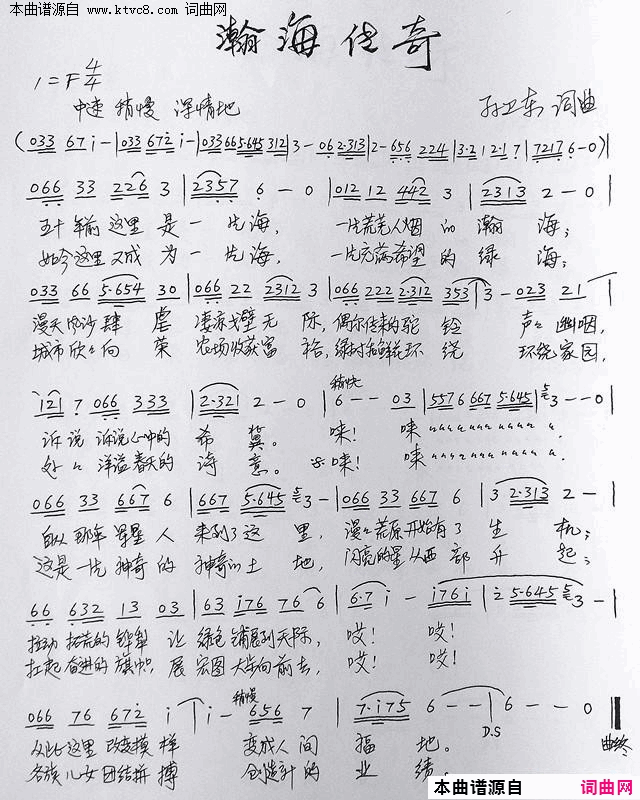 本曲谱源自
www.ktvc8.com 词曲网
瀚海传奇
1=F 4/4
中速 稍慢 深情地 孙卫东 词曲
(033 67 i-|033 672 i-|033 665·645 312|3-062·313|2-656 224|3·212·17|7217 6-0)|
066 33 226 3|2357 6-0|012 12 442 3|2313 2-0|
五十年前这里是一片海, 一片荒芜人烟的瀚海;
如今这里又成为一片海, 一片充满希望的绿海;
033 66 5·654 30|066 22 2312 3|066 222 2·312 353|3-023 21|
漫天风沙肆虐 凄凉戈壁无际,偶尔传来的驼铃 声々幽咽,
城市欣々向荣 农场收获富裕,绿树和鲜花环绕 环绕家园,
i21 7 066 333|2·321 2-0|稍快 6--03|5576 667 5·645|3--0|
诉说 诉说心中的希冀。 唻! 唻
处々 洋溢春天的诗意。 唻! 唻
066 33 667 6|667 5·645 3-|066 33 667 6|3 2·313 2-|
自从那年军垦人来到了这里, 漫々荒原开始有了生机;
这是一片神奇的神奇的土地, 闪亮的星从西部升起;
66 632 13 03|63 i76 76 6|6·7 i-|i76i|2 5·645 3-|
拉动拓荒的铧犁 让绿色铺展到天际, 哎! 哎!
扛起奋进的旗帜, 展宏图大步向前去, 哎! 哎!
066 76 672 i|i-稍慢 656 7|7·i75 6--|6--0|
D.S 曲终
从此这里改变模样 变成人间福地。
各族儿女团结拼搏 创造新的业绩。
本曲谱源自 词曲网